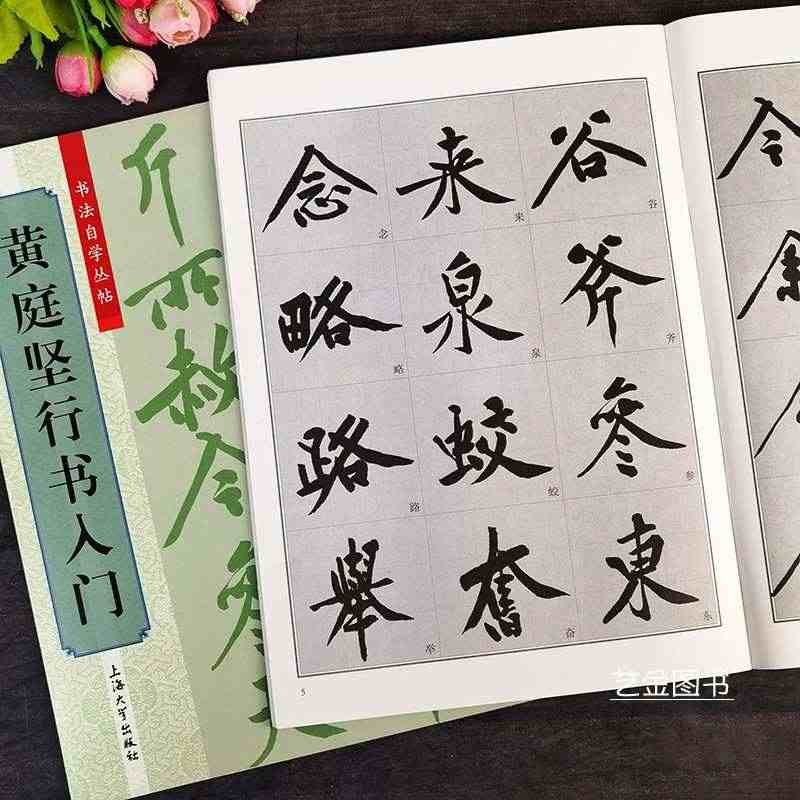 书法自学丛帖
黄庭坚行书入门
上海大学出版社
谷 谷
斧 斧
参 参
東 东
来 来
泉 泉
蛟 蛟
奮 奋
念 念
略 略
路 路
舉 举
5
艺金图书